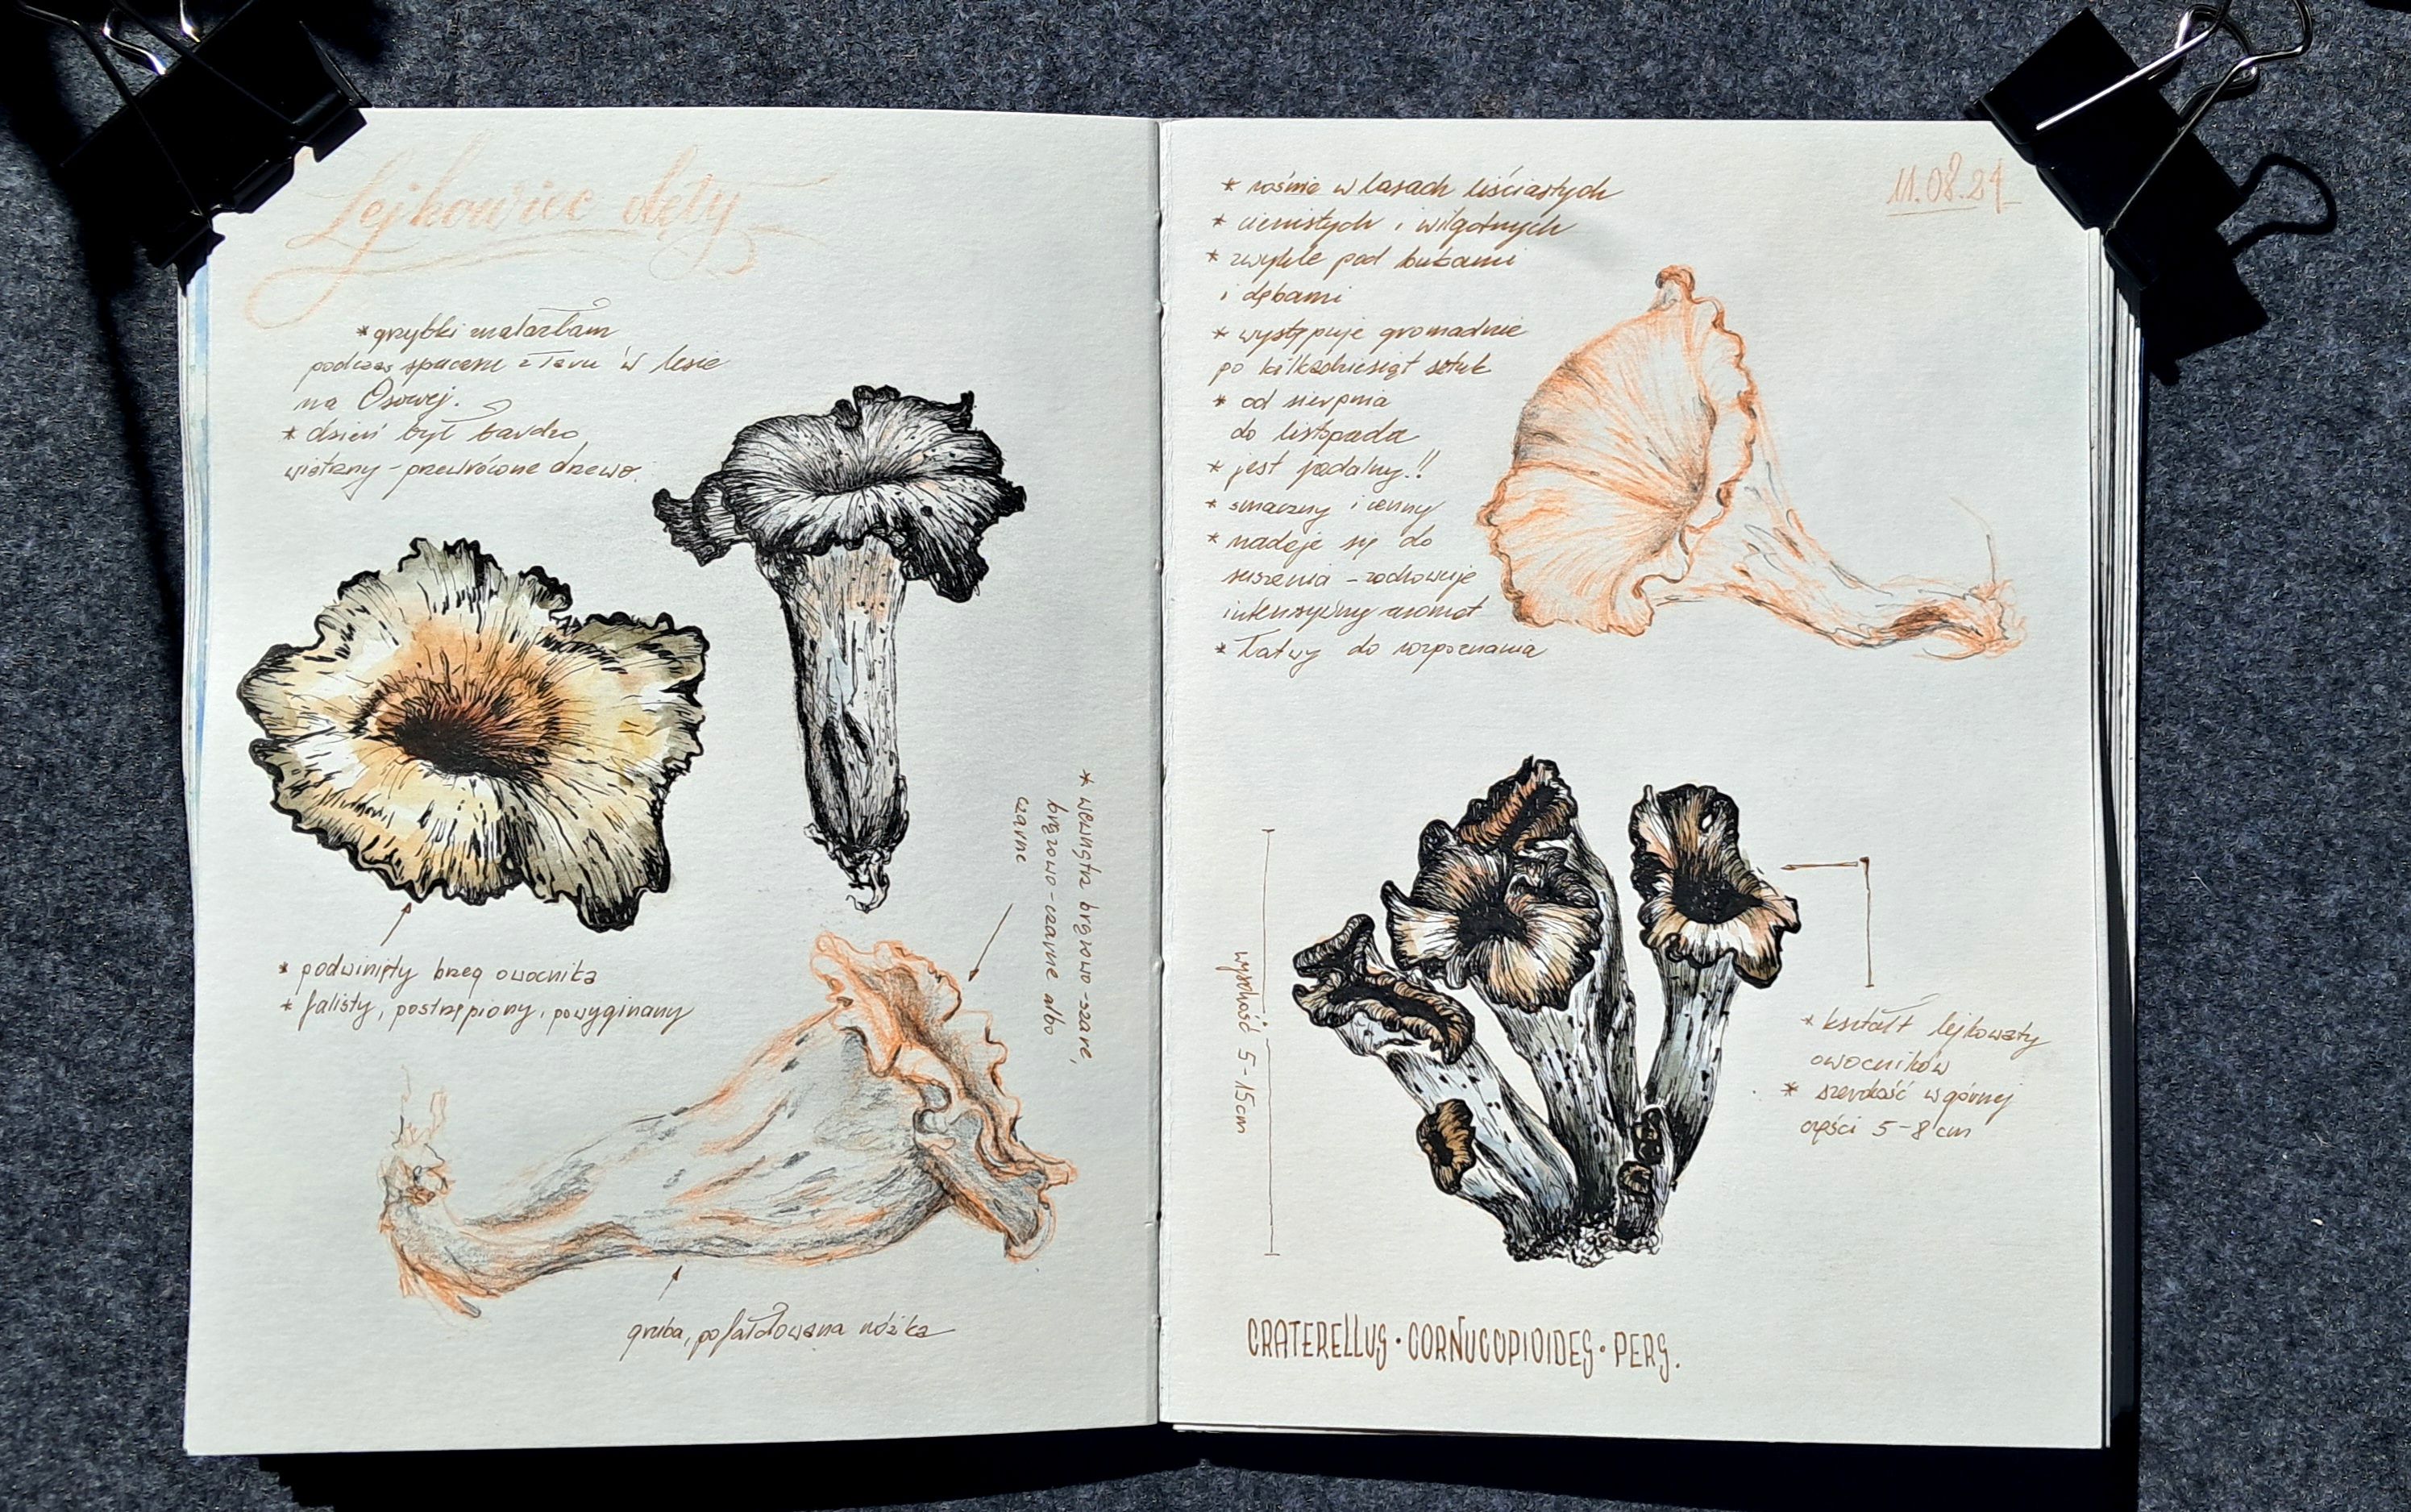 Lejkowiec dęty
* grzybki znalazłam
podczas spaceru z Tavu w lesie
na Osowej.
* dzień był bardzo
wietrzny - przewrócone drzewo.
* podwinięty brzeg owocnika
* falisty, postrzępiony, powyginany
* wewnątrz brązowo-szare,
brązowo-czarne albo
czarne
gruba, pofałdowana nóżka
11.08.21
* rośnie w lasach liściastych
* cienistych i wilgotnych
* zwykle pod bukami
i dębami
* występuje gromadnie
po kilkadziesiąt sztuk
* od sierpnia
do listopada
* jest jadalny!!
* smaczny i cenny
* nadaje się do
suszenia - zachowuje
intensywny aromat
* łatwy do rozpoznania
wysokość 5-15cm
* kształt lejkowaty
owocników
* szerokość w górnej
części 5-8 cm
CRATERELLUS · CORNUCOPIOIDES · PERS.